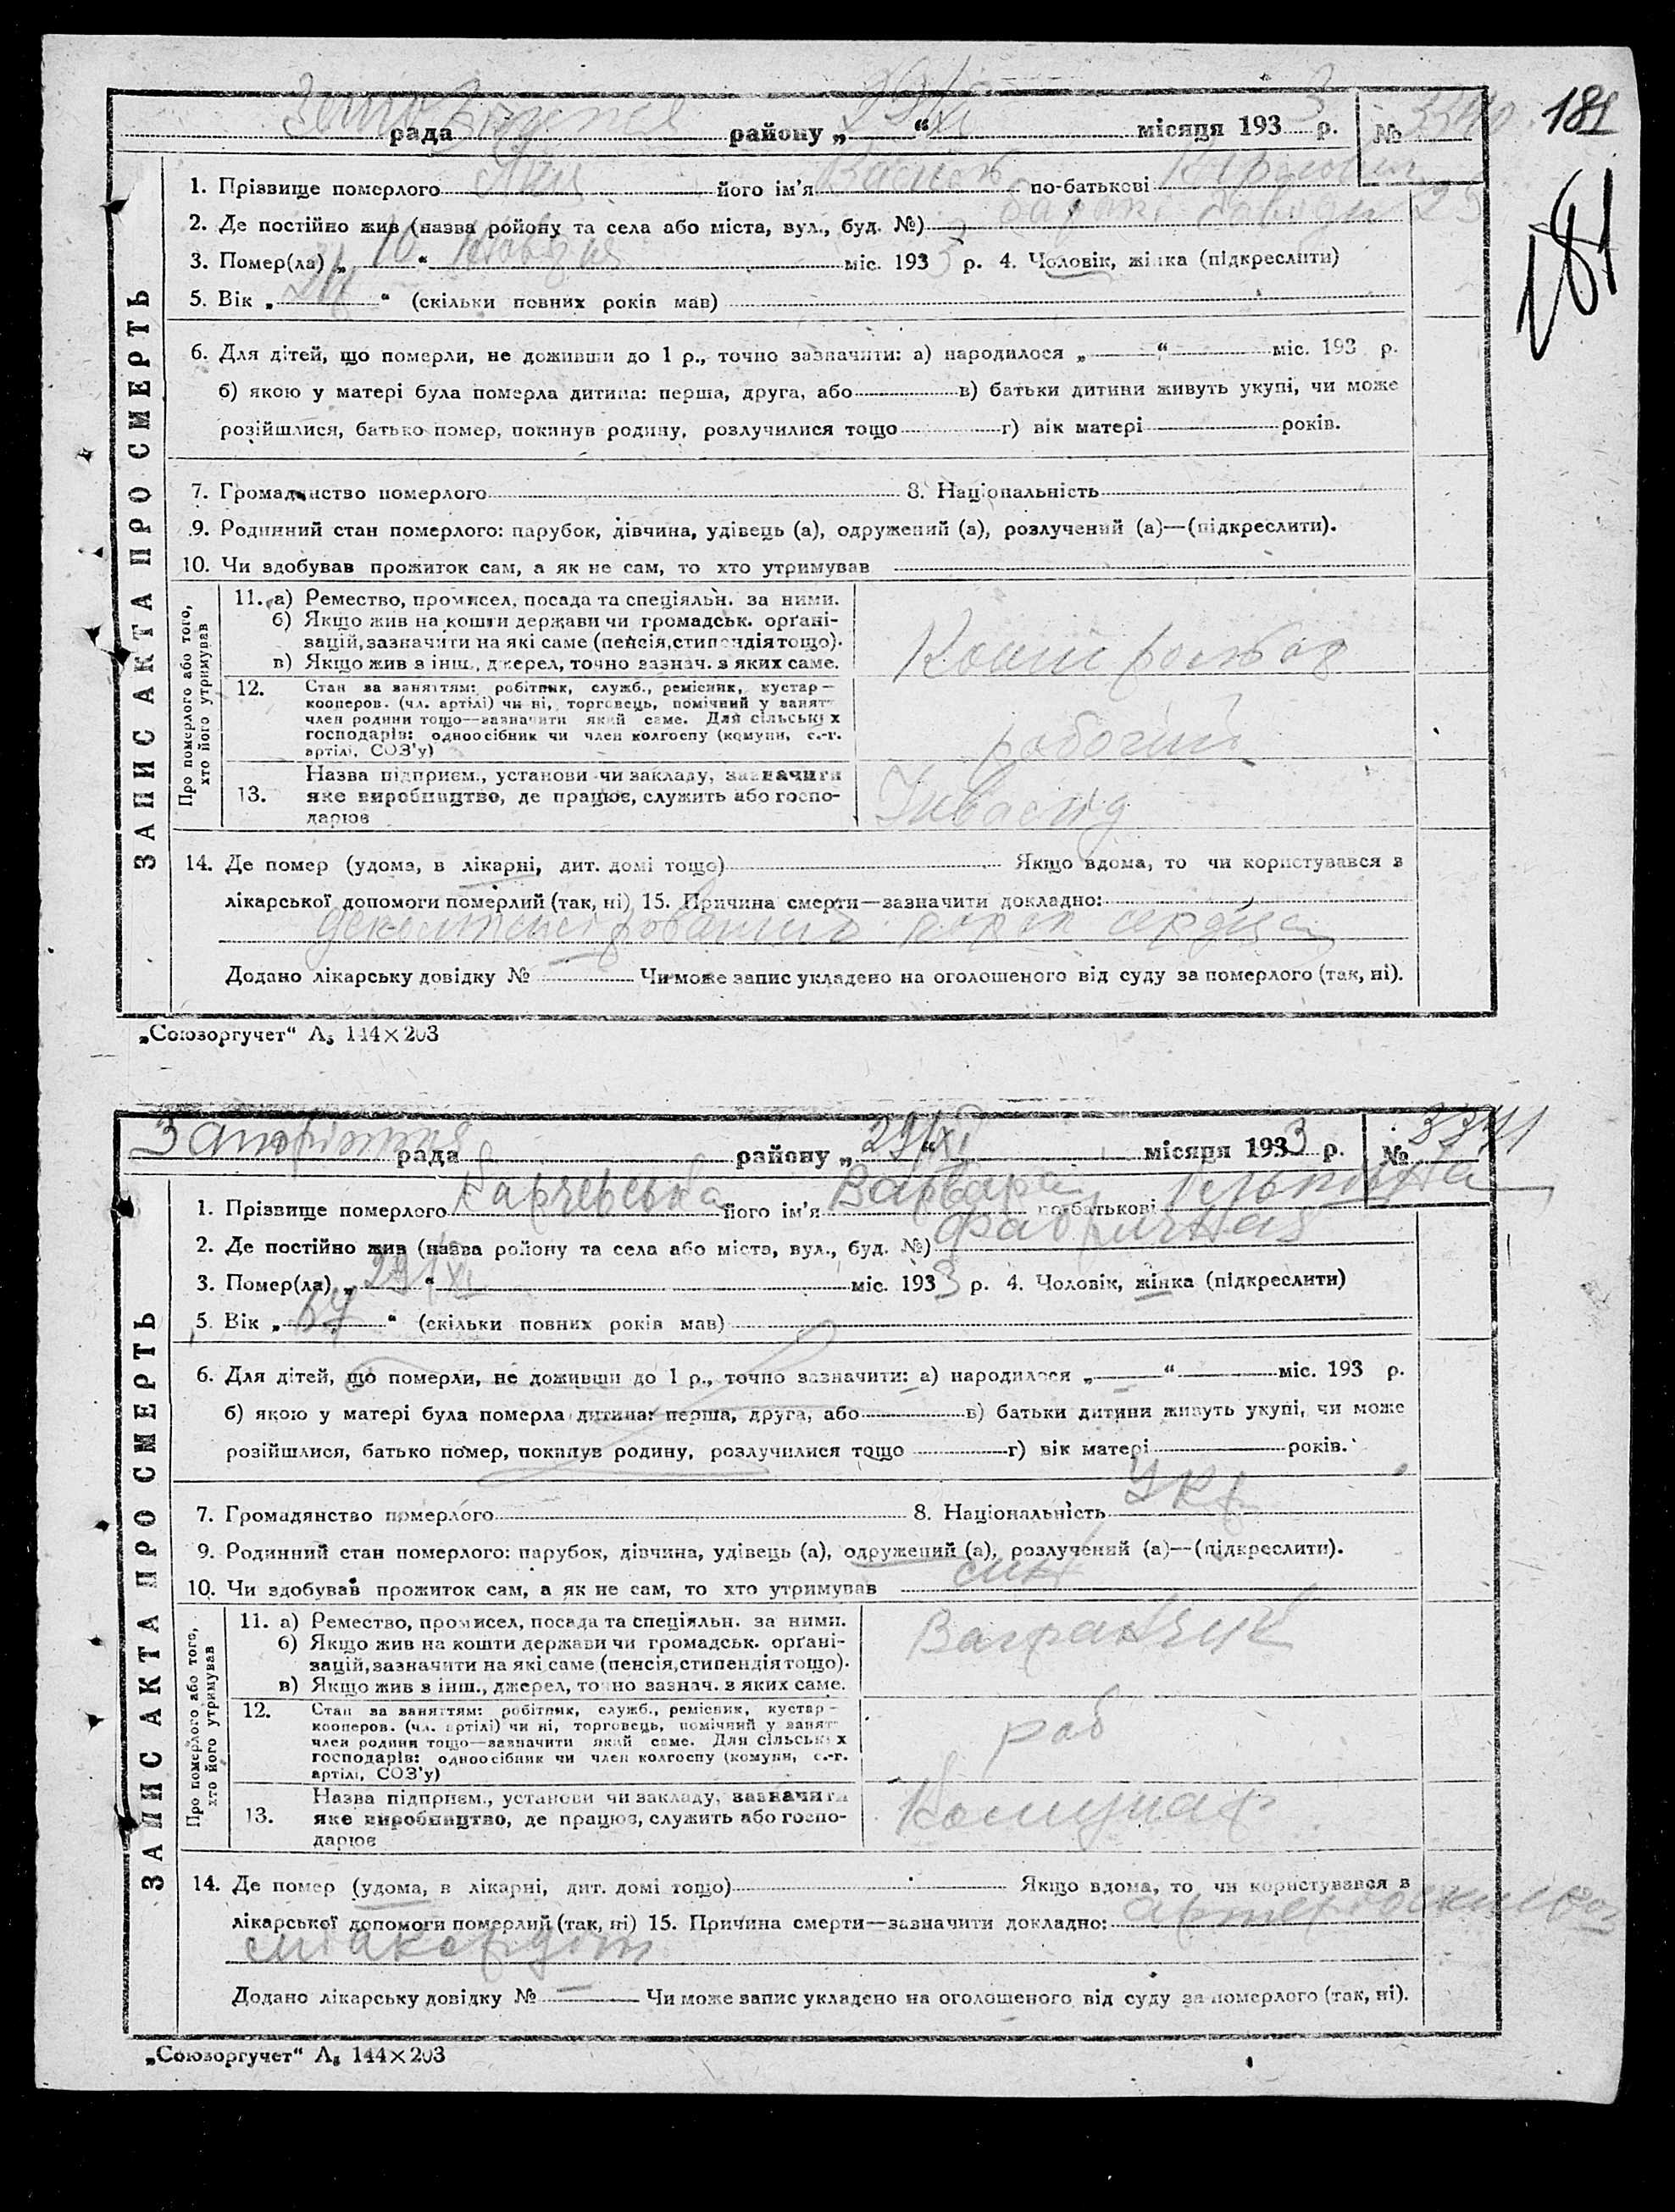 рада району „ “ XI місяця 1933 р. № 3340 181
181
ЗАПИС АКТА ПРО СМЕРТЬ
1. Прізвище померлого його ім'я по-батькові
2. Де постійно жив (назва ройону та села або міста, вул., буд. №)
3. Помер(ла) „ “ міс. 1933 р. 4. Чоловік, жінка (підкреслити)
5. Вік „ “ (скільки повних років мав)
6. Для дітей, що померли, не доживши до 1 р., точно зазначити: а) народилося „ “ міс. 193 р.
б) якою у матері була померла дитина: перша, друга, або в) батьки дитини живуть укупі, чи може
розійшлися, батько помер, покинув родину, розлучилися тощо г) вік матері років.
7. Громадянство померлого 8. Національність
9. Родинний стан померлого: парубок, дівчина, удівець (а), одружений (а), розлучений (а)—(підкреслити).
10. Чи здобував прожиток сам, а як не сам, то хто утримував
Про померлого або того,
хто його утримував
11. а) Ремество, промисел, посада та спеціяльн. за ними.
б) Якщо жив на кошти держави чи громадськ. орґані-
зацій, зазначити на які саме (пенсія, стипендія тощо).
в) Якщо жив з інш., джерел, точно зазнач. з яких саме.
12. Стан за заняттям: робітник, служб., ремісник, кустар—
кооперов. (чл. артілі) чи ні, торговець, помічний у занят-
член родини тощо—зазначити який саме. Для сільських
господарів: одноосібник чи член колгоспу (комуни, с.-г.
артілі, СОЗ'у)
робочий
13. Назва підприєм., установи чи закладу, зазначити
яке виробництво, де працює, служить або госпо-
дарює
Инвалид
14. Де помер (удома, в лікарні, дит. домі тощо) Якщо вдома, то чи користувався з
лікарської допомоги померлий (так, ні) 15. Причина смерти—зазначити докладно:
порок сердца
Додано лікарську довідку № Чи може запис укладено на оголошеного від суду за померлого (так, ні).
„Союзоргучет“ А₅ 144×203
рада району „29“ XI місяця 1933 р. № 3341
ЗАПИС АКТА ПРО СМЕРТЬ
1. Прізвище померлого його ім'я Варвара по-батькові
2. Де постійно жив (назва ройону та села або міста, вул., буд. №) Фабричная
3. Помер(ла) „29“ XI міс. 1933 р. 4. Чоловік, жінка (підкреслити)
5. Вік „ “ (скільки повних років мав)
6. Для дітей, що померли, не доживши до 1 р., точно зазначити: а) народилося „ “ міс. 193 р.
б) якою у матері була померла дитина: перша, друга, або в) батьки дитини живуть укупі, чи може
розійшлися, батько помер, покинув родину, розлучилися тощо г) вік матері років.
7. Громадянство померлого 8. Національність Укр
9. Родинний стан померлого: парубок, дівчина, удівець (а), одружений (а), розлучений (а)—(підкреслити).
10. Чи здобував прожиток сам, а як не сам, то хто утримував син
Про померлого або того,
хто його утримував
11. а) Ремество, промисел, посада та спеціяльн. за ними.
б) Якщо жив на кошти держави чи громадськ. орґані-
зацій, зазначити на які саме (пенсія, стипендія тощо).
в) Якщо жив з інш., джерел, точно зазнач. з яких саме.
Вагранчик
12. Стан за заняттям: робітник, служб., ремісник, кустар—
кооперов. (чл. артілі) чи ні, торговець, помічний у занят-
член родини тощо—зазначити який саме. Для сільських
господарів: одноосібник чи член колгоспу (комуни, с.-г.
артілі, СОЗ'у)
роб
13. Назва підприєм., установи чи закладу, зазначити
яке виробництво, де працює, служить або госпо-
дарює
Комунар
14. Де помер (удома, в лікарні, дит. домі тощо) Якщо вдома, то чи користувався з
лікарської допомоги померлий (так, ні) 15. Причина смерти—зазначити докладно:
Додано лікарську довідку № — Чи може запис укладено на оголошеного від суду за померлого (так, ні).
„Союзоргучет“ А₅ 144×203